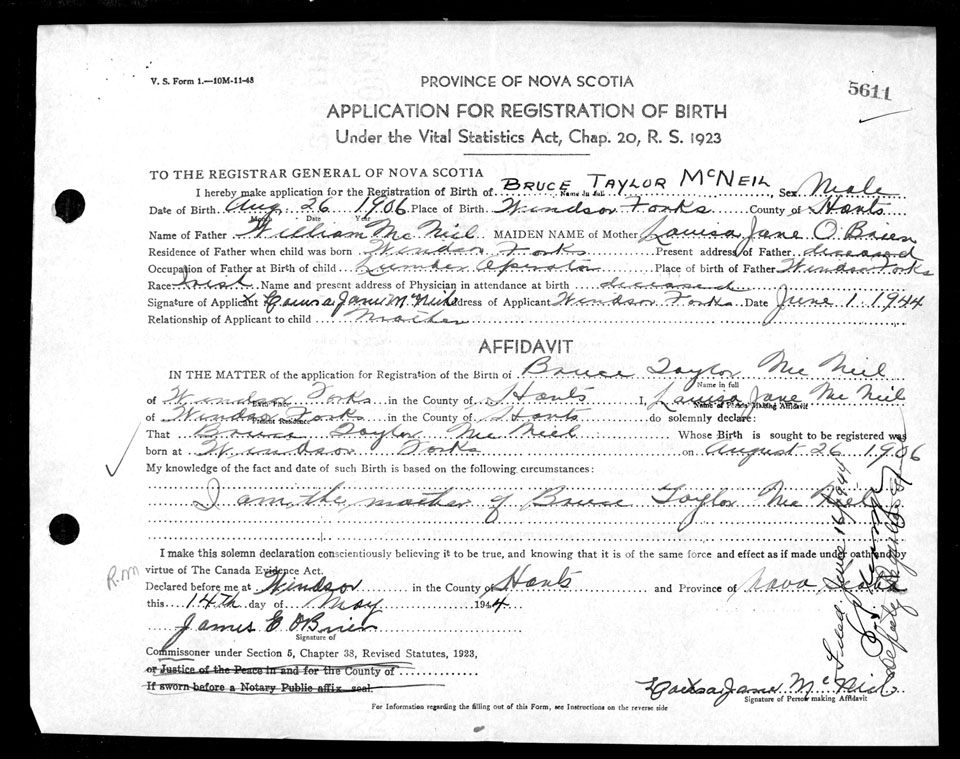 V. S. Form 1.—10M-11-43
PROVINCE OF NOVA SCOTIA
5611
APPLICATION FOR REGISTRATION OF BIRTH
Under the Vital Statistics Act, Chap. 20, R. S. 1923
TO THE REGISTRAR GENERAL OF NOVA SCOTIA
I hereby make application for the Registration of Birth of BRUCE TAYLOR McNEIL Sex Male
Name in full
Date of Birth Aug 26 1906 Place of Birth Windsor Forks County of Hants
Month Date Year
Name of Father William McNiel MAIDEN NAME of Mother Louisa Jane O'Brien
Residence of Father when child was born Windsor Forks Present address of Father diseased
Occupation of Father at Birth of child Lumber Operator Place of birth of Father Windsor Forks
Race Irish Name and present address of Physician in attendance at birth diseased
Signature of Applicant x Louisa Jane McNiel Address of Applicant Windsor Forks Date June 1 1944
Relationship of Applicant to child Mother
AFFIDAVIT
IN THE MATTER of the application for Registration of the Birth of Bruce Taylor McNiel
Name in full
of Windsor Forks in the County of Hants I, Louisa Jane McNiel
Name of Person Making Affidavit
of Windsor Forks in the County of Hants do solemnly declare:
Present Residence
That Bruce Taylor McNiel Whose Birth is sought to be registered was
born at Windsor Forks on August 26 1906
My knowledge of the fact and date of such Birth is based on the following circumstances:
I am the mother of Bruce Taylor McNiel
I make this solemn declaration conscientiously believing it to be true, and knowing that it is of the same force and effect as if made under oath and by
R.M
virtue of The Canada Evidence Act.
Declared before me at Windsor in the County of Hants and Province of Nova Scotia
this 14th day of May 1944
James E O'Brien
Signature of
Commissoner under Section 5, Chapter 38, Revised Statutes, 1923,
or Justice of the Peace in and for the County of
If sworn before a Notary Public affix seal.
Louisa Jane McNiel
Signature of Person making Affidavit
For Information regarding the filling out of this Form, see Instructions on the reverse side
Filed June 16/1944
Deputy Registrar